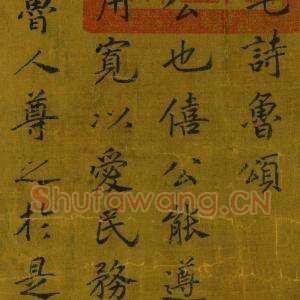 毛詩魯頌
公也僖公能遵
用寬以愛民務
魯人尊之於是
Shufawang.CN